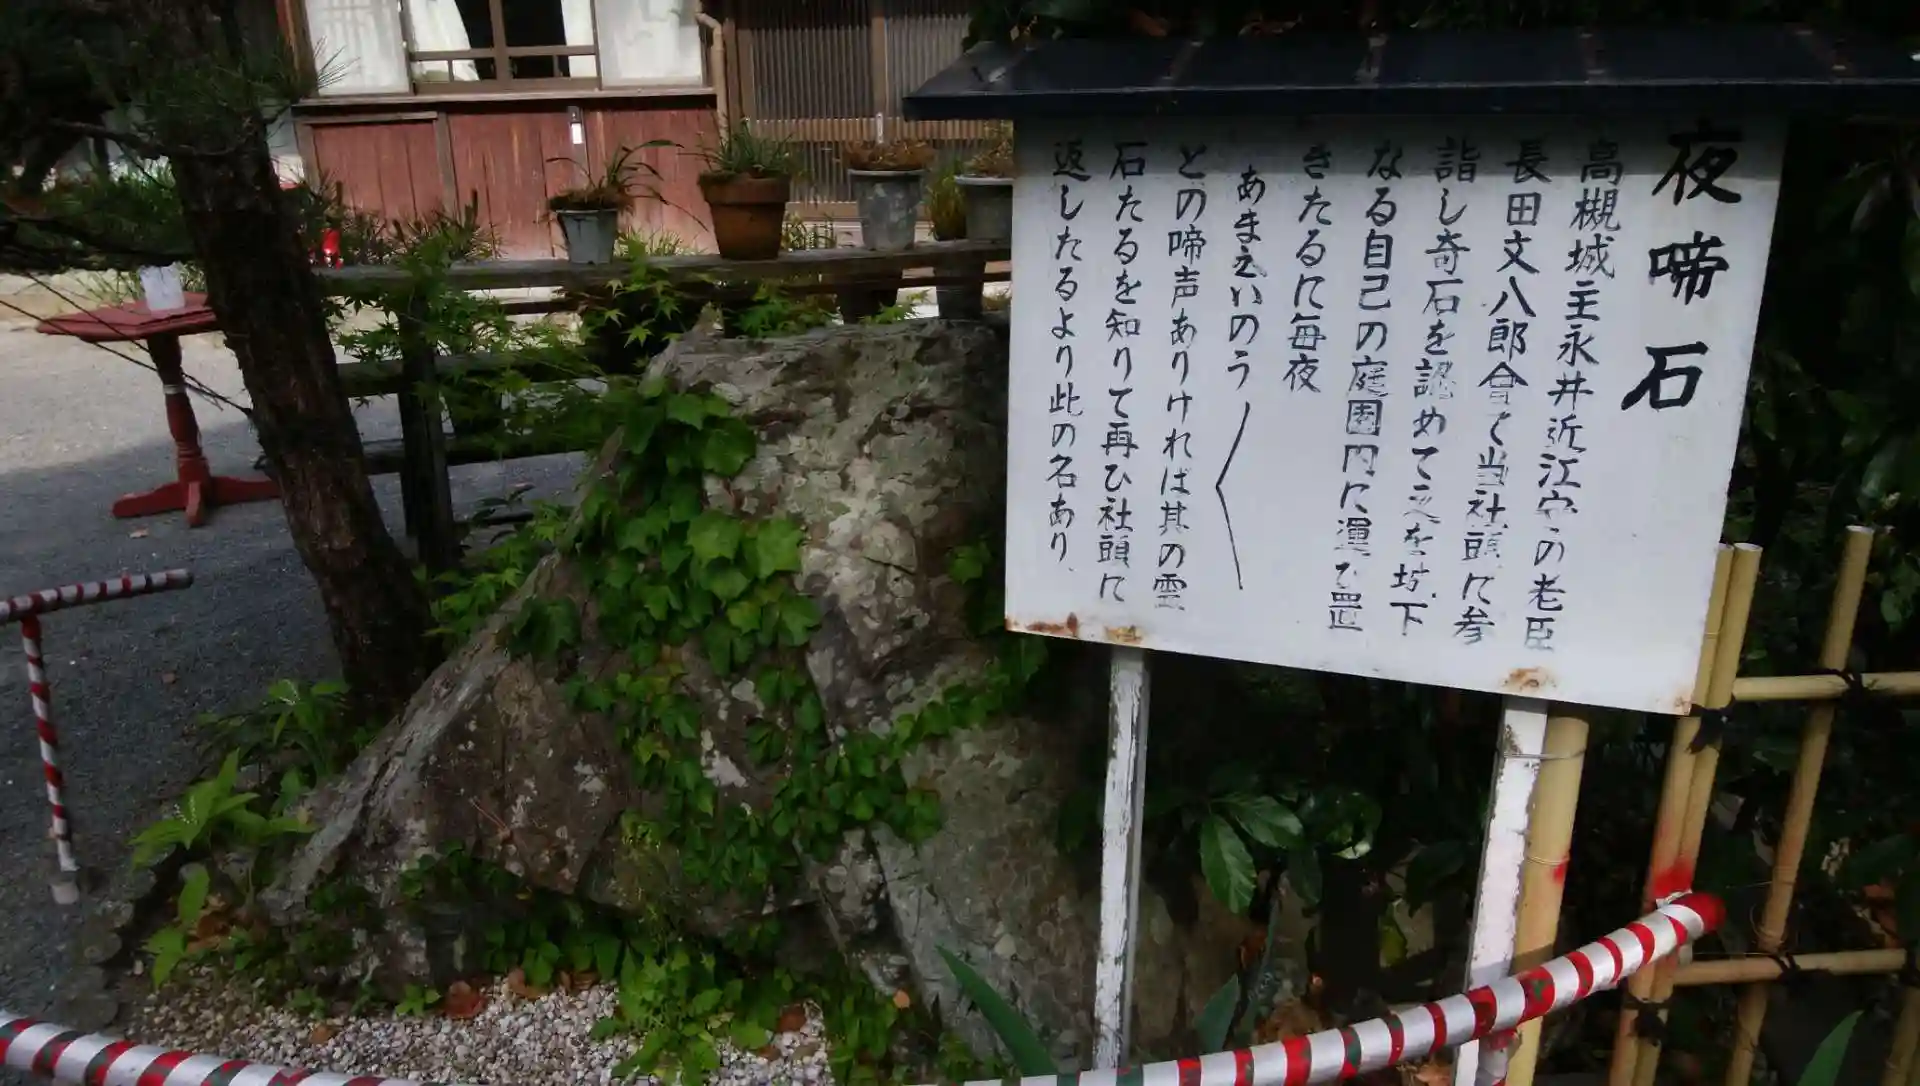 夜啼石
高槻城主永井近江守の老臣
長田文八郎会て当社頭に参
詣し奇石を認めて之を城下
なる自己の庭園内に運び置
きたるに毎夜
あまえいのう
との啼声ありければ其の霊
石たるを知りて再ひ社頭に
返したるより此の名あり